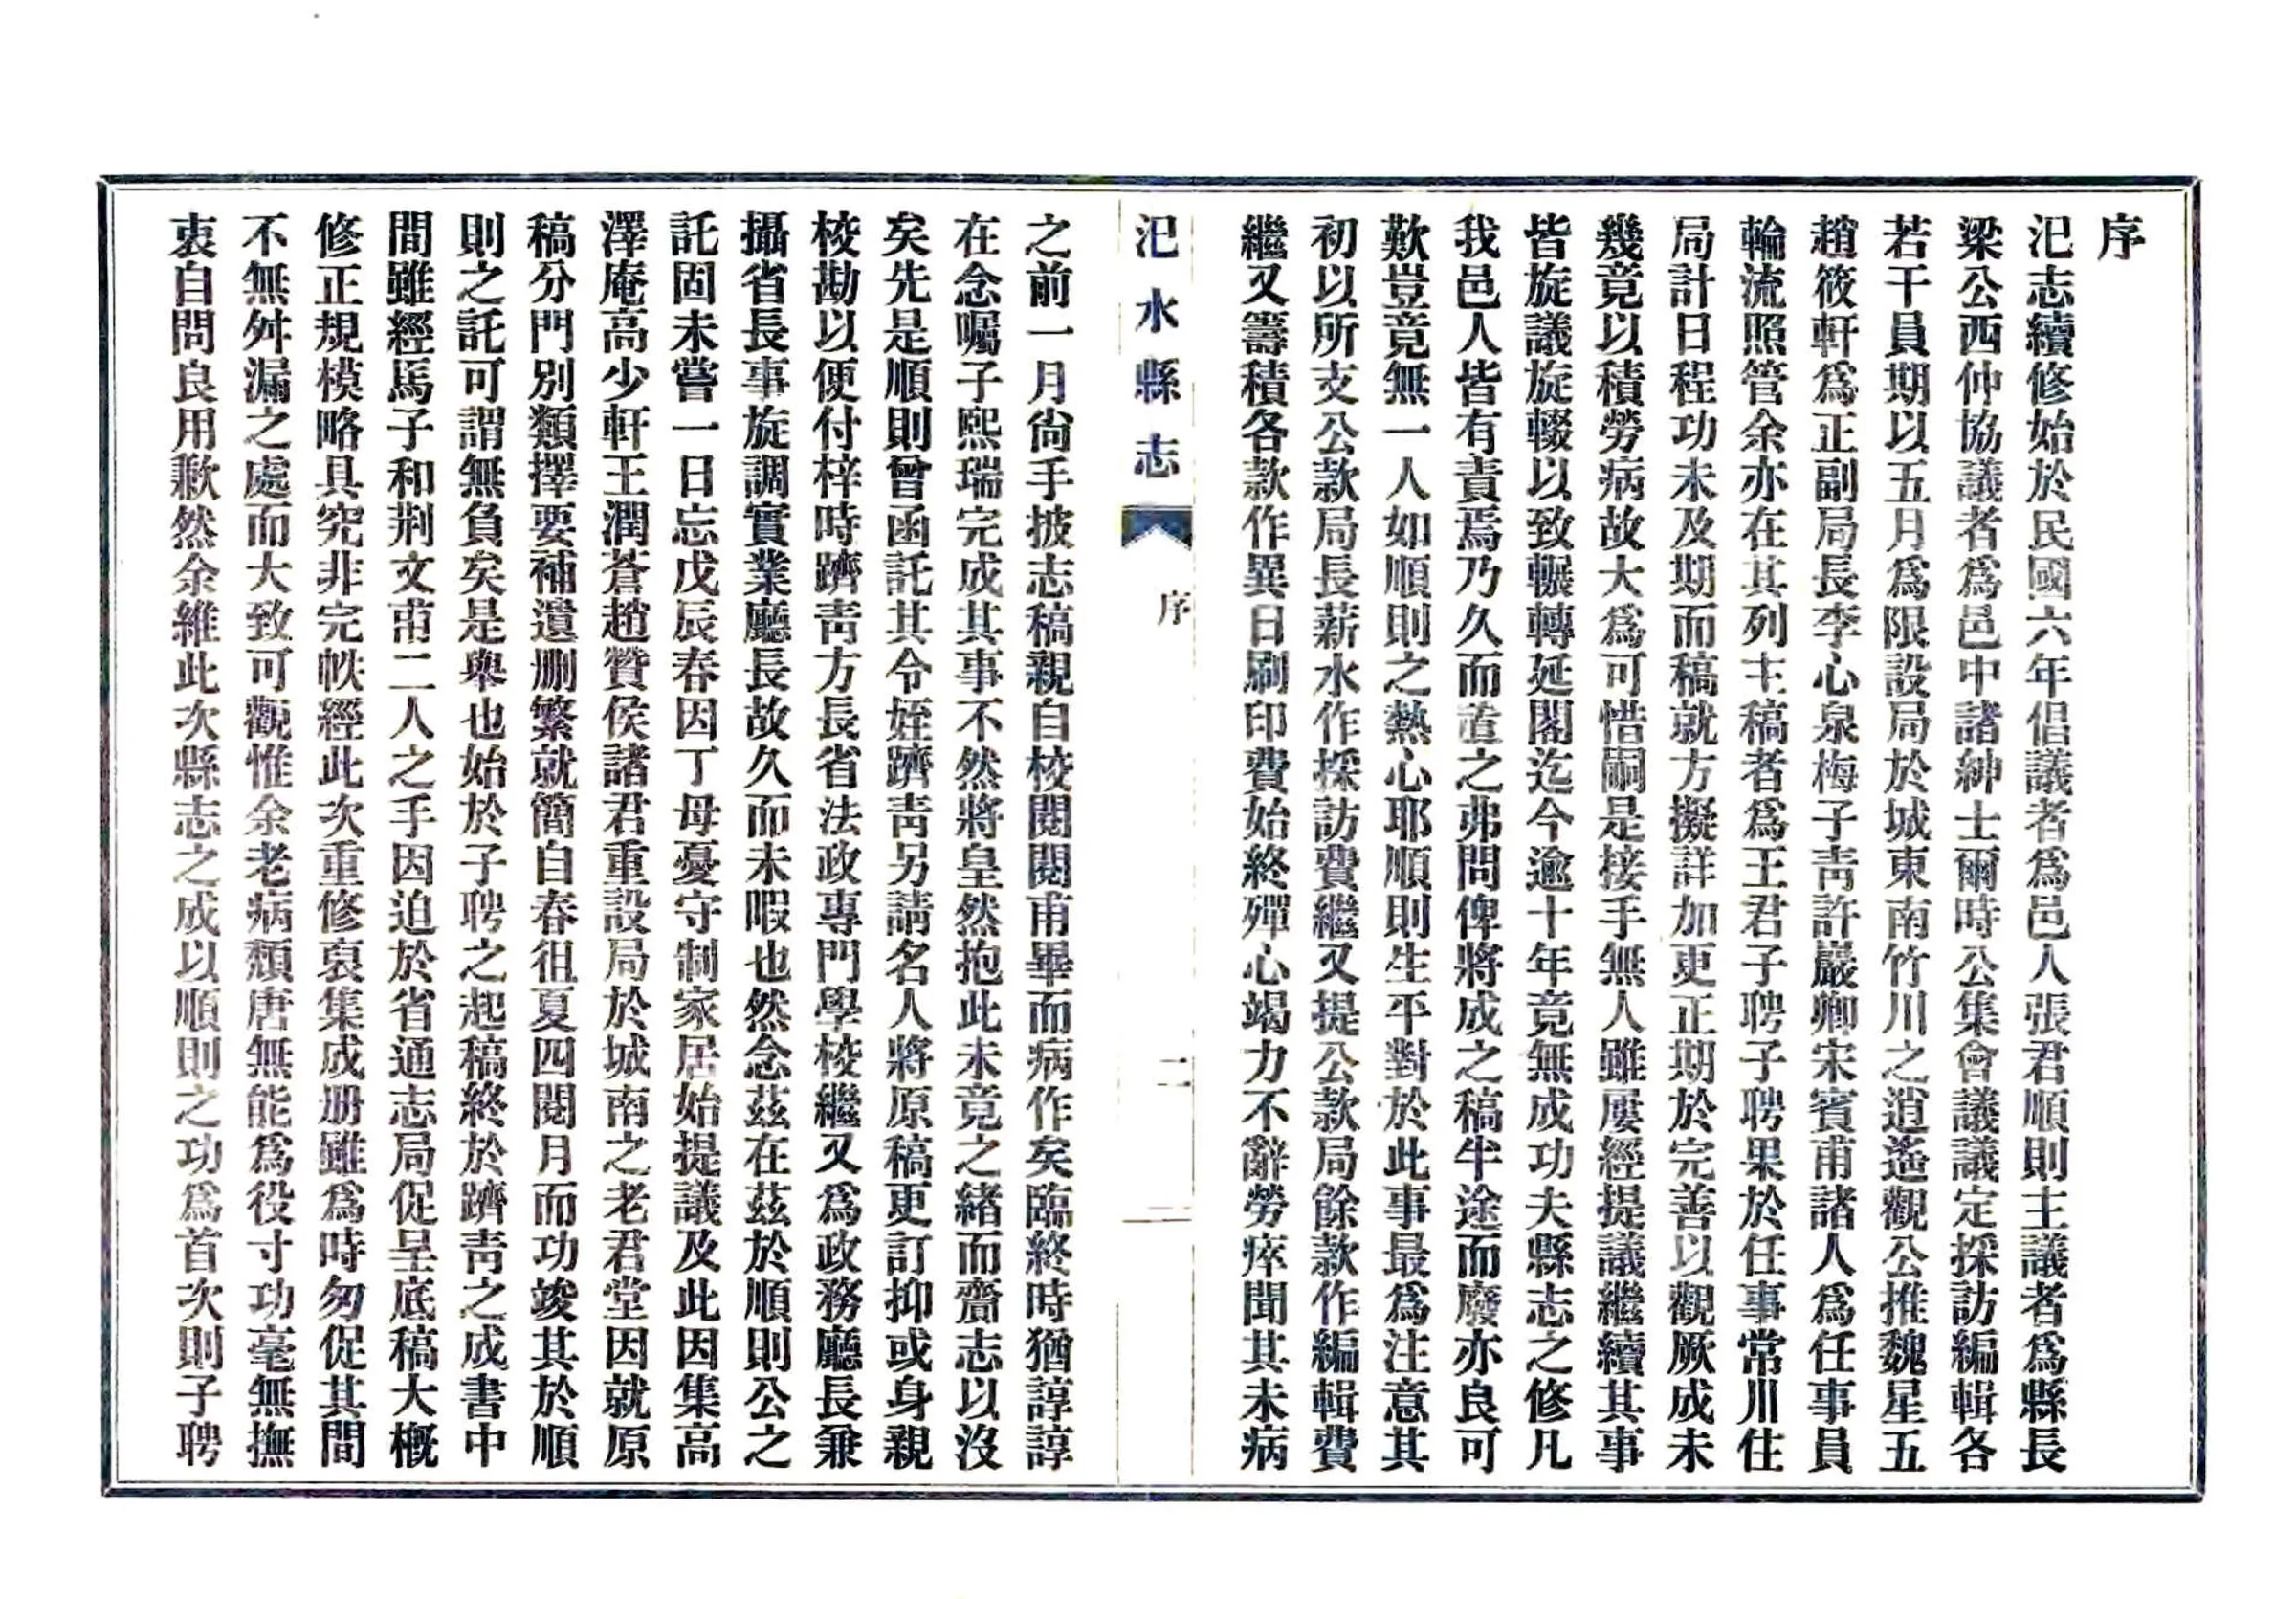 序
汜志續修始於民國六年倡議者為邑人張君順則主議者為縣長
梁公西仲協議者為邑中諸紳士爾時公集會議議定採訪編輯各
若干員期以五月為限設局於城東南竹川之逍遙觀公推魏星五
趙筱軒為正副局長李心泉梅子青許巖卿宋賓甫諸人為任事員
輪流照管余亦在其列主稿者為王君子聘子聘果於任事常川住
局計日程功未及期而稿就方擬詳加更正期於完善以觀厥成未
幾竟以積勞病故大為可惜嗣是接手無人雖屢經提議繼續其事
皆旋議旋輟以致輾轉延閣迄今逾十年竟無成功夫縣志之修凡
我邑人皆有責焉乃久而置之弗問俾將成之稿半途而廢亦良可
歎豈竟無一人如順則之熱心耶順則生平對於此事最為注意其
初以所支公款局長薪水作採訪費繼又提公款局餘款作編輯費
繼又籌積各款作異日刷印費始終殫心竭力不辭勞瘁聞其未病
汜水縣志 序 二
之前一月尙手披志稿親自校閱閱甫畢而病作矣臨終時猶諄諄
在念囑子熙瑞完成其事不然將皇然抱此未竟之緒而齎志以沒
矣先是順則曾函託其令姪躋青另請名人將原稿更訂抑或身親
校勘以便付梓時躋青方長省法政專門學校繼又為政務廳長兼
攝省長事旋調實業廳長故久而未暇也然念茲在茲於順則公之
託固未嘗一日忘戊辰春因丁母憂守制家居始提議及此因集高
澤庵高少軒王潤蒼趙贊侯諸君重設局於城南之老君堂因就原
稿分門別類擇要補遺刪繁就簡自春徂夏四閱月而功竣其於順
則之託可謂無負矣是舉也始於子聘之起稿終於躋青之成書中
間雖經馬子和荆文甫二人之手因迫於省通志局促呈底稿大概
修正規模略具究非完帙經此次重修裒集成册雖為時匆促其間
不無舛漏之處而大致可觀惟余老病頹唐無能為役寸功毫無撫
衷自問良用歉然余維此次縣志之成以順則之功為首次則子聘